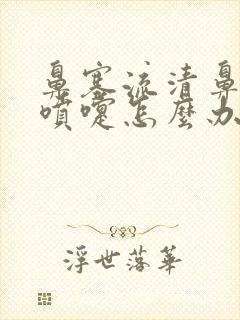 鼻塞流清鼻
噴嚏怎麼办
浮世落華